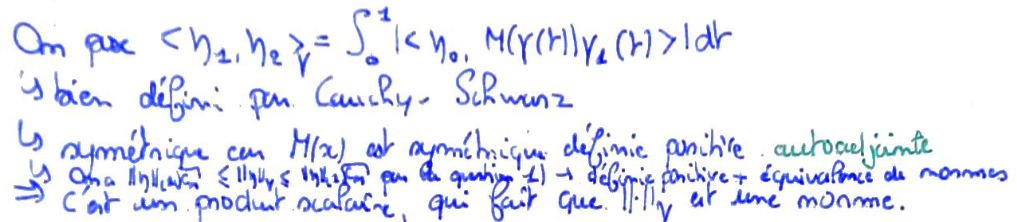 On pose <η₁, η₂>_γ = ∫₀¹ |<η₀, M(γ(t))γ₁(t)>| dt
↳ bien défini par Cauchy-Schwarz
↳ symétrique car M(x) est symétrique définie positive autoadjointe
↳ On a ≤ ||η||_γ ≤ par la question 1) → définie positive + équivalence de normes
⇒ C'est un produit scalaire, qui fait que ||·||_γ est une norme.